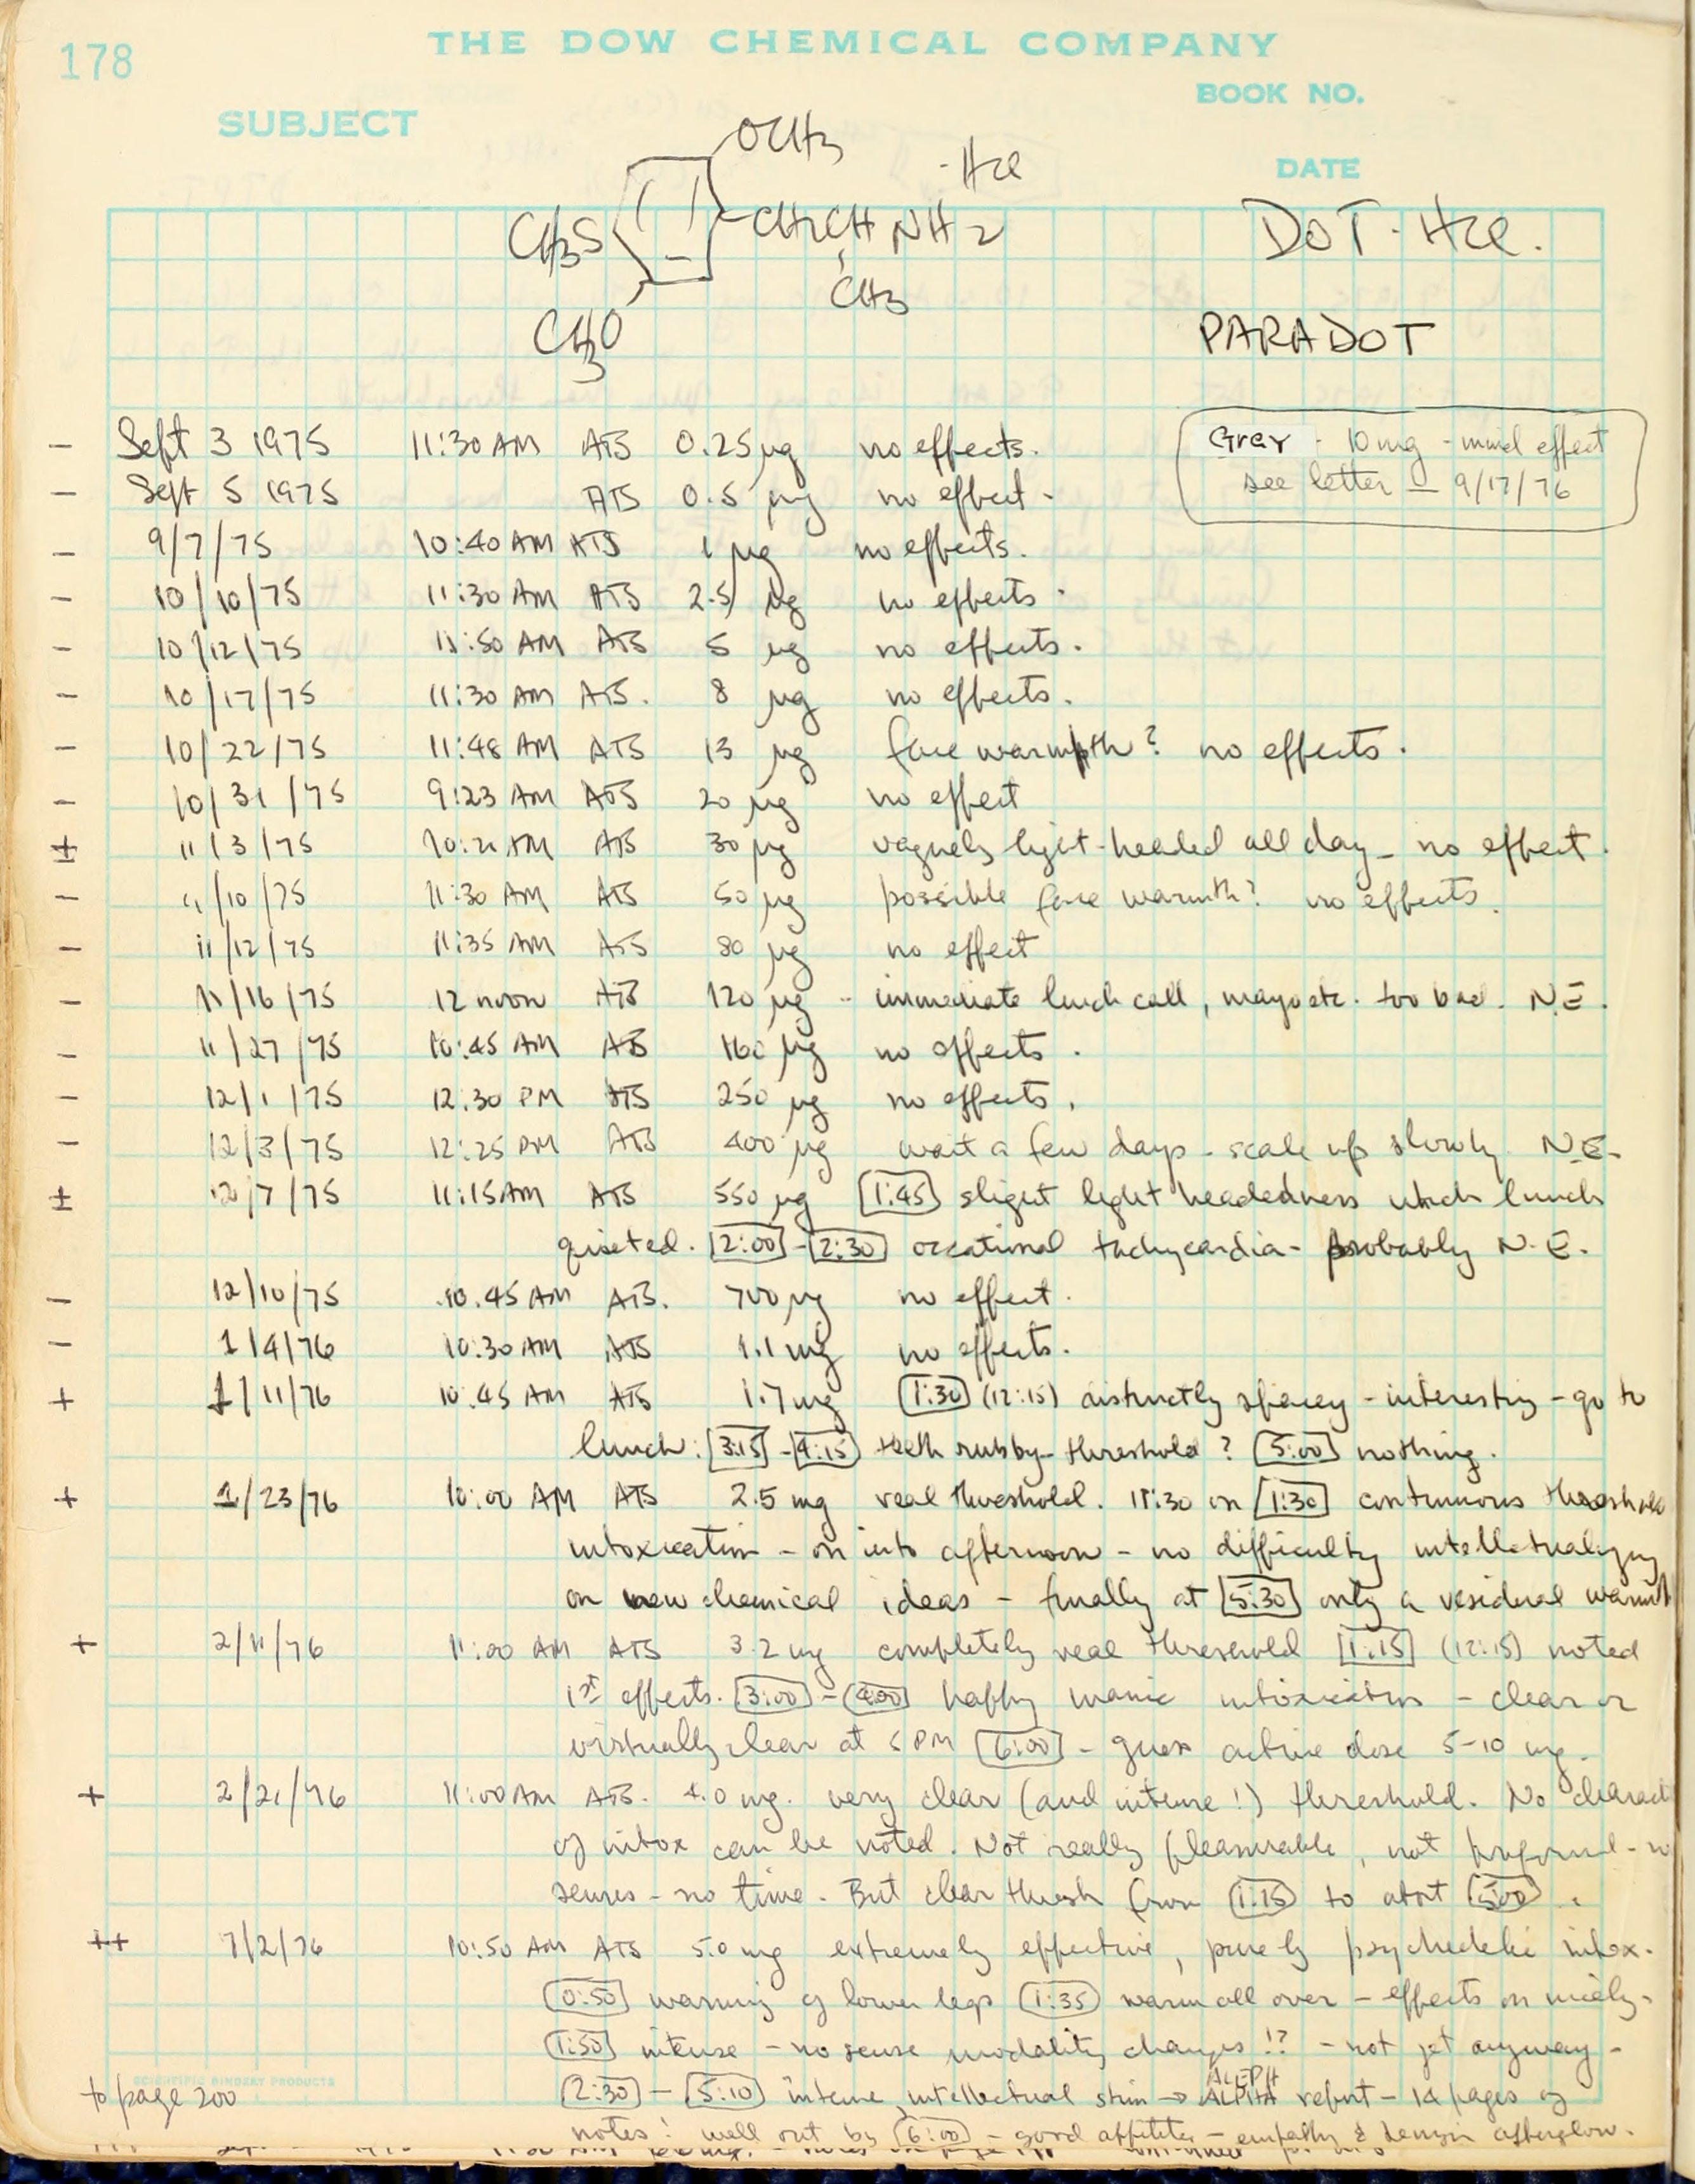 178
THE DOW CHEMICAL COMPANY
BOOK NO.
SUBJECT
DATE
OCH3
·HCl
CH3S CH2CH NH2
CH3
CH3O
DOT·HCl.
PARADOT
Gray - 10 mg - mind effect
see letter 9/17/76
- Sept 3 1975 11:30 AM ATS 0.25 µg no effects.
- Sept 5 1975 ATS 0.5 µg no effect.
- 9/7/75 10:40 AM ATS 1 µg no effects.
- 10/10/75 11:30 AM ATS 2.5 µg no effects.
- 10/12/75 11:50 AM ATS 5 µg no effects.
- 10/17/75 11:30 AM ATS. 8 µg no effects.
- 10/22/75 11:48 AM ATS 13 µg face warmth? no effects.
- 10/31/75 9:23 AM ATS 20 µg no effect
± 11/3/75 AM ATS 30 µg vaguely light-headed all day - no effect.
- 11/10/75 11:30 AM ATS 50 µg possible face warmth? no effects.
- 11/12/75 11:35 AM ATS 80 µg no effect
- 11/16/75 12 noon ATS 120 µg - immediate lunch call, mayo etc. too bad. N.E.
- 11/27/75 10:45 AM ATS 160 µg no effects.
- 12/1/75 12:30 PM ATS 250 µg no effects.
- 12/3/75 12:25 PM ATS 400 µg wait a few days - scale up slowly N.E.
± 12/7/75 11:15 AM ATS 550 µg [1:45] slight light headedness which lunch
quieted. [2:00]-[2:30] occational tachycardia - probably N.E.
- 12/10/75 10:45 AM ATS. 700 µg no effect.
- 1/4/76 10:30 AM ATS 1.1 mg no effects.
+ 1/11/76 10:45 AM ATS 1.7 mg [1:30] (12:15) distinctly spacey - interesting - go to
lunch: [3:15]-[4:15] teeth rubby - threshold? [5:00] nothing.
+ 1/23/76 10:00 AM ATS 2.5 mg real threshold. 11:30 on [1:30] continuous threshold
intoxication - on into afternoon - no difficulty intellectualizing
on new chemical ideas - finally at [5:30] only a residual warmth
+ 2/11/76 11:00 AM ATS 3.2 mg completely real threshold [1:15] (12:15) noted
1st effects. [3:00]-[4:00] happy manic intoxication - clear or
virtually clear at 5 PM [6:00] - guess active dose 5-10 mg.
+ 2/21/76 11:00 AM ATS. 4.0 mg. very clear (and intense!) threshold. No charact
of intox can be noted. Not really pleasurable, not - no
senses - no time. But clear thresh from [1:15] to abot [5:00].
++ 7/2/76 10:50 AM ATS 5.0 mg extremely effective, purely psychedelic intox.
[0:50] warming of lower legs [1:35] warm all over - effects on nicely.
[1:50] intense - no sense modality changes !? - not yet anyway -
[2:30] - [5:10] intense intellectual stim → ALPHA ALEPH report - 14 pages of
notes! well out by [6:00] - good appetite - empathy & benign afterglow.
SCIENTIFIC BINDERY PRODUCTS
to page 200